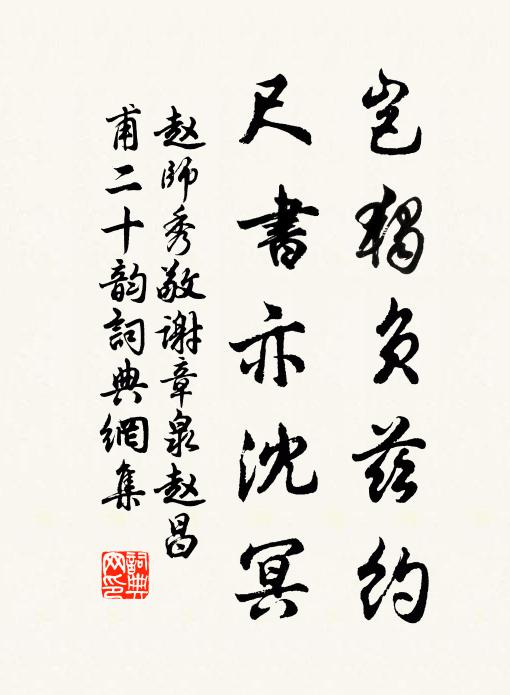 岂独负兹约
尺書亦沈冥
赵師秀敬谢章泉赵昌
甫二十韵詞典網集
詞典
网印